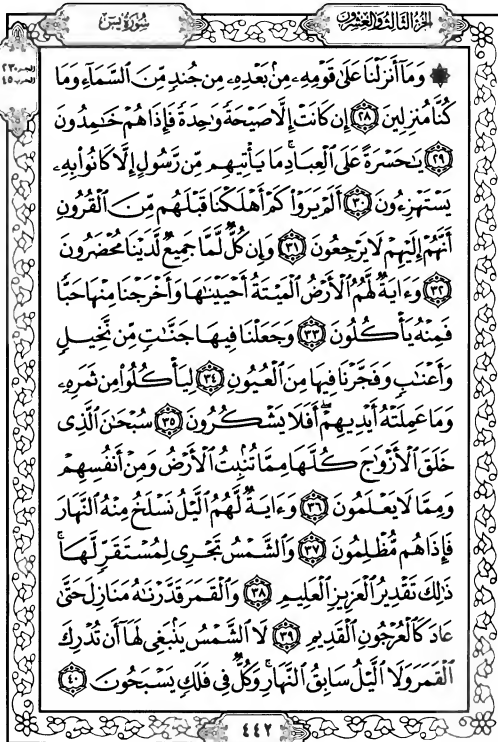 الجزء الثالث والعشرون
سُورَةُ يسٓ
الجزء ٢٣
الحزب ٤٥
۞ وَمَآ أَنزَلۡنَا عَلَىٰ قَوۡمِهِۦ مِنۢ بَعۡدِهِۦ مِن جُندٖ مِّنَ ٱلسَّمَآءِ وَمَا
كُنَّا مُنزِلِينَ ٢٨ إِن كَانَتۡ إِلَّا صَيۡحَةٗ وَٰحِدَةٗ فَإِذَا هُمۡ خَٰمِدُونَ
٢٩ يَٰحَسۡرَةً عَلَى ٱلۡعِبَادِۚ مَا يَأۡتِيهِم مِّن رَّسُولٍ إِلَّا كَانُواْ بِهِۦ
يَسۡتَهۡزِءُونَ ٣٠ أَلَمۡ يَرَوۡاْ كَمۡ أَهۡلَكۡنَا قَبۡلَهُم مِّنَ ٱلۡقُرُونِ
أَنَّهُمۡ إِلَيۡهِمۡ لَا يَرۡجِعُونَ ٣١ وَإِن كُلّٞ لَّمَّا جَمِيعٞ لَّدَيۡنَا مُحۡضَرُونَ
٣٢ وَءَايَةٞ لَّهُمُ ٱلۡأَرۡضُ ٱلۡمَيۡتَةُ أَحۡيَيۡنَٰهَا وَأَخۡرَجۡنَا مِنۡهَا حَبّٗا
فَمِنۡهُ يَأۡكُلُونَ ٣٣ وَجَعَلۡنَا فِيهَا جَنَّٰتٖ مِّن نَّخِيلٖ
وَأَعۡنَٰبٖ وَفَجَّرۡنَا فِيهَا مِنَ ٱلۡعُيُونِ ٣٤ لِيَأۡكُلُواْ مِن ثَمَرِهِۦ
وَمَا عَمِلَتۡهُ أَيۡدِيهِمۡۚ أَفَلَا يَشۡكُرُونَ ٣٥ سُبۡحَٰنَ ٱلَّذِي
خَلَقَ ٱلۡأَزۡوَٰجَ كُلَّهَا مِمَّا تُنۢبِتُ ٱلۡأَرۡضُ وَمِنۡ أَنفُسِهِمۡ
وَمِمَّا لَا يَعۡلَمُونَ ٣٦ وَءَايَةٞ لَّهُمُ ٱلَّيۡلُ نَسۡلَخُ مِنۡهُ ٱلنَّهَارَ
فَإِذَا هُم مُّظۡلِمُونَ ٣٧ وَٱلشَّمۡسُ تَجۡرِي لِمُسۡتَقَرّٖ لَّهَاۚ
ذَٰلِكَ تَقۡدِيرُ ٱلۡعَزِيزِ ٱلۡعَلِيمِ ٣٨ وَٱلۡقَمَرَ قَدَّرۡنَٰهُ مَنَازِلَ حَتَّىٰ
عَادَ كَٱلۡعُرۡجُونِ ٱلۡقَدِيمِ ٣٩ لَا ٱلشَّمۡسُ يَنۢبَغِي لَهَآ أَن تُدۡرِكَ
ٱلۡقَمَرَ وَلَا ٱلَّيۡلُ سَابِقُ ٱلنَّهَارِۚ وَكُلّٞ فِي فَلَكٖ يَسۡبَحُونَ ٤٠
٤٤٢